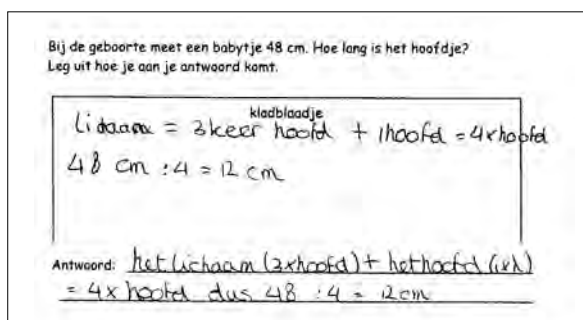 Bij de geboorte meet een babytje 48 cm. Hoe lang is het hoofdje?
Leg uit hoe je aan je antwoord komt.
kladblaadje
lidaam = 3 keer hoofd + 1hoofd = 4x hoofd
48 cm : 4 = 12 cm
Antwoord: het lichaam (3xhoofd) + het hoofd (1xh)
= 4x hoofd dus 48 : 4 = 12cm